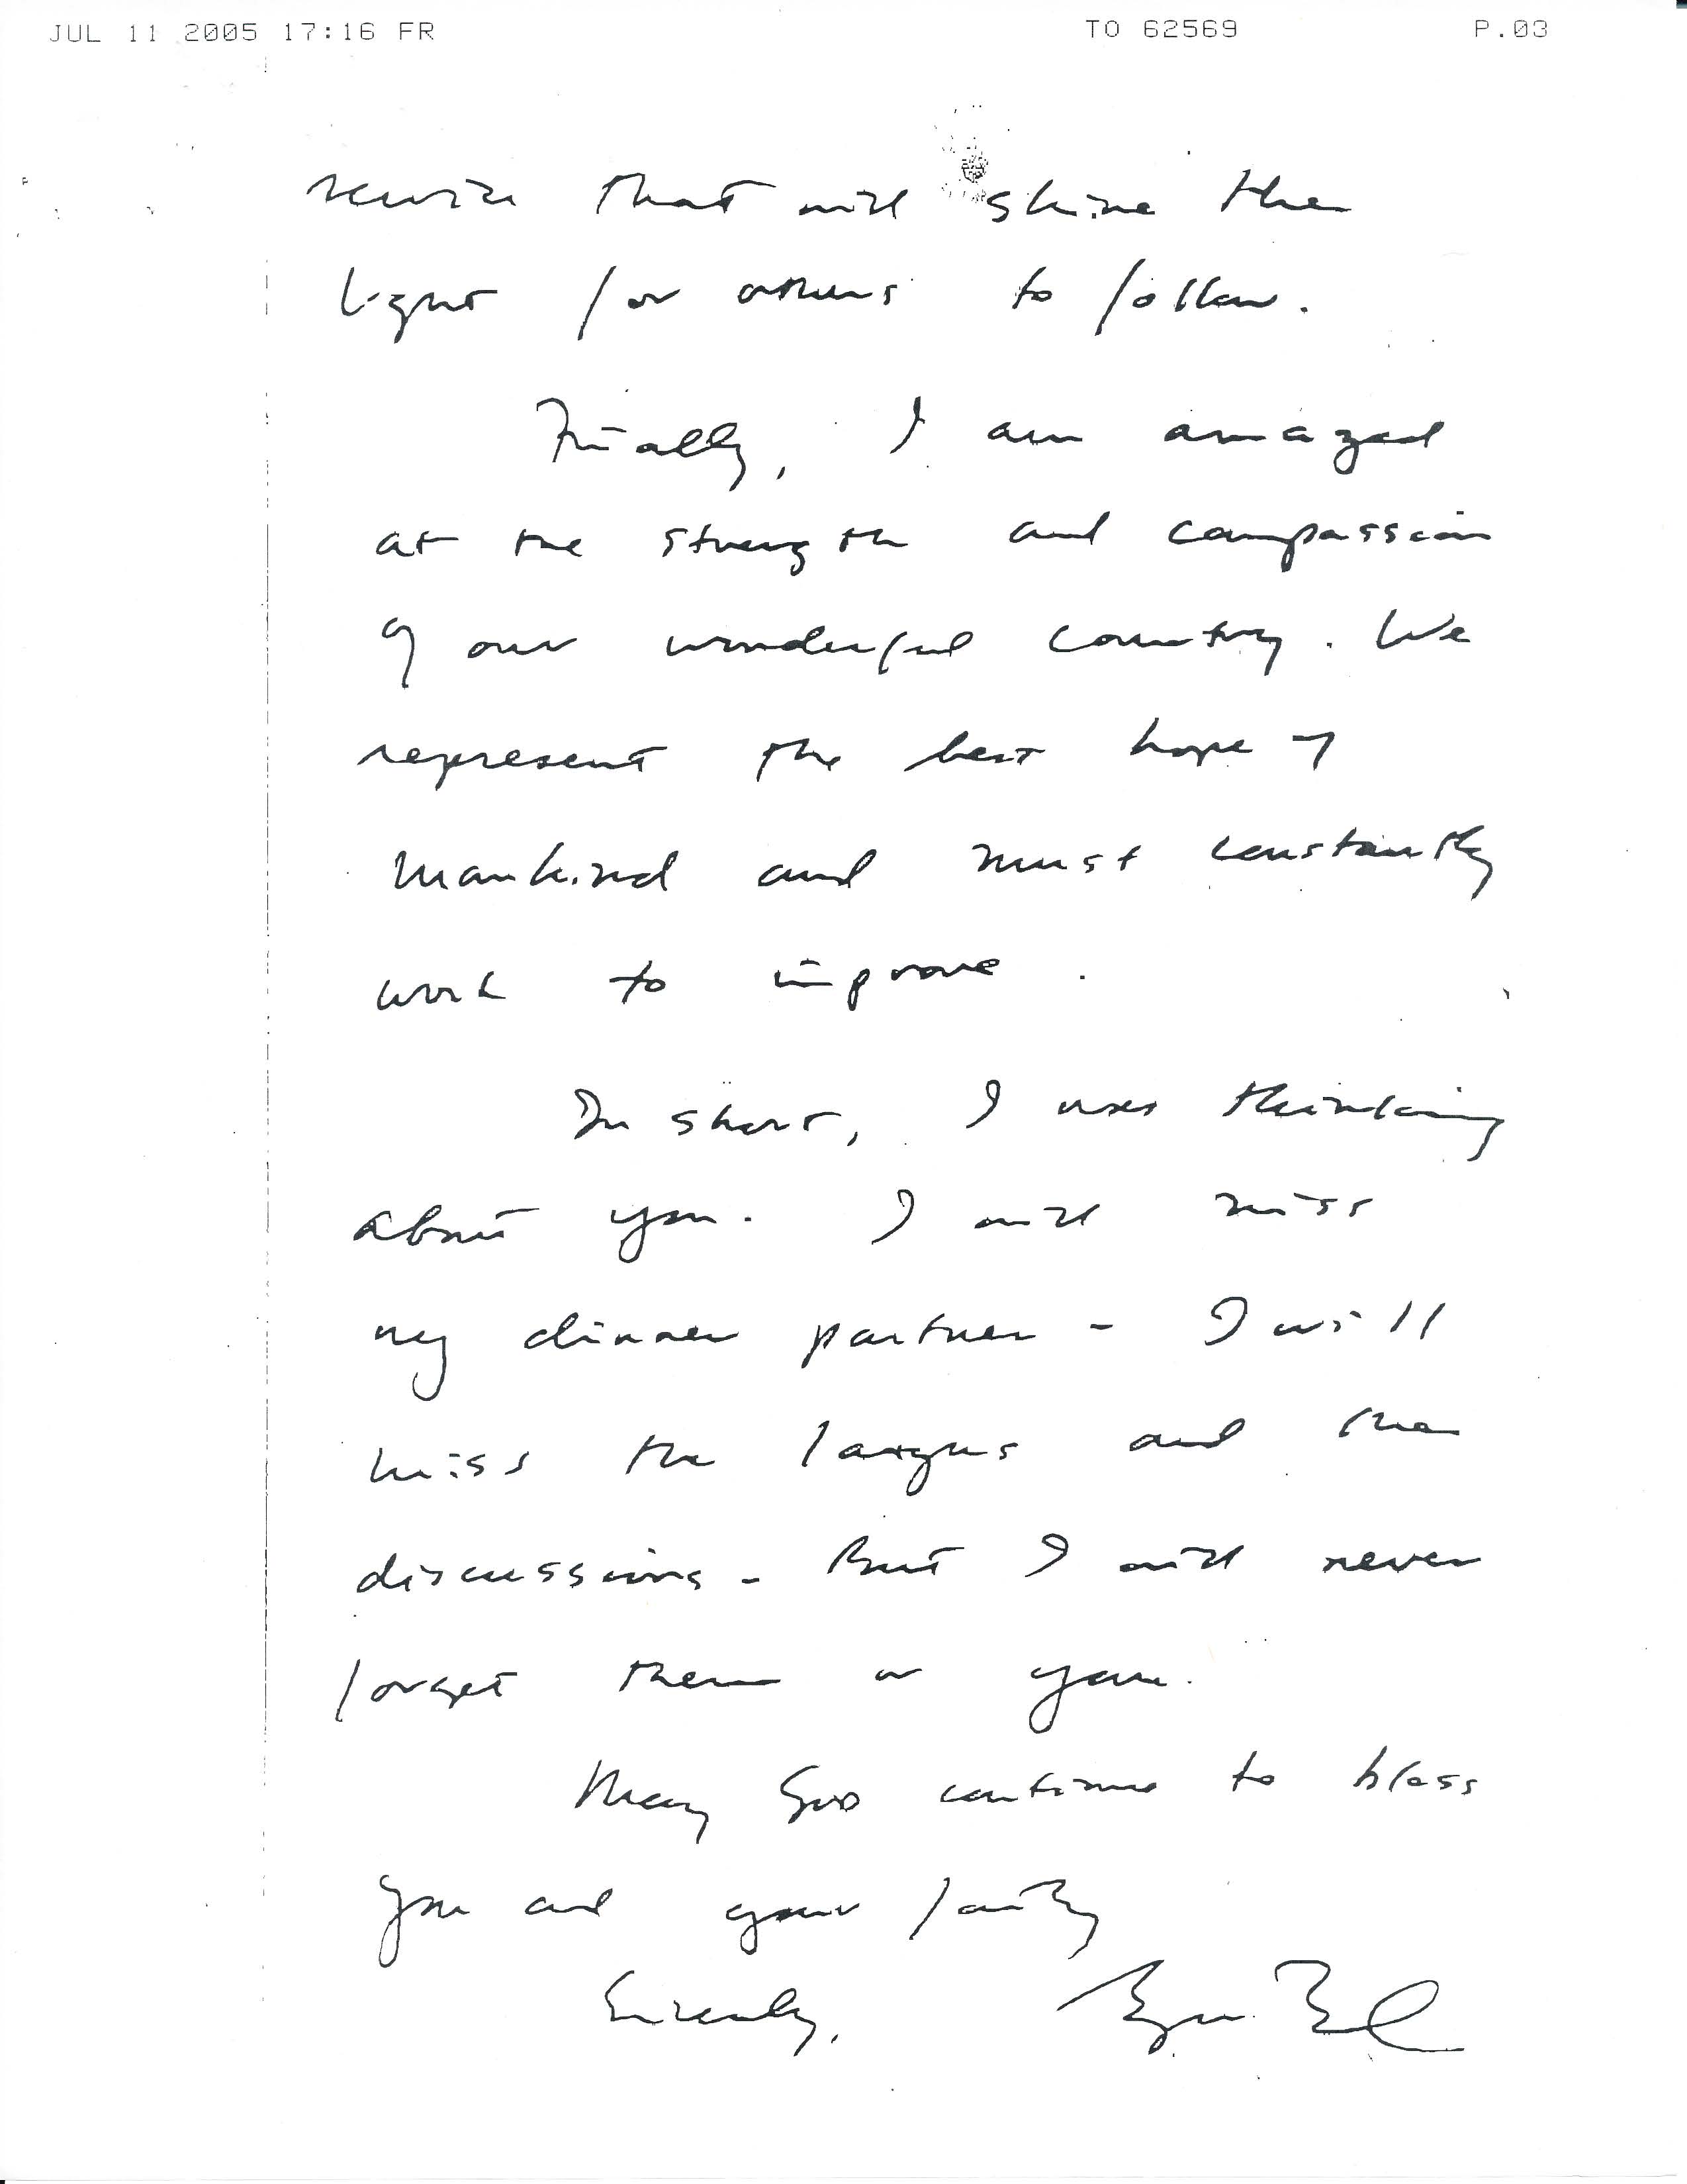 JUL 11 2005 17:16 FR TO 62569 P.03
service that will shine the
light for others to follow.
Finally, I am amazed
at the strength and compassion
of our wonderful country. We
represent the best hope of
mankind and must constantly
work to improve.
In short, I was thinking
about you. I will miss
my dinner partner - I will
miss the laughs and the
discussions - But I will never
forget them or you.
May God continue to bless
you and your family
Sincerely,